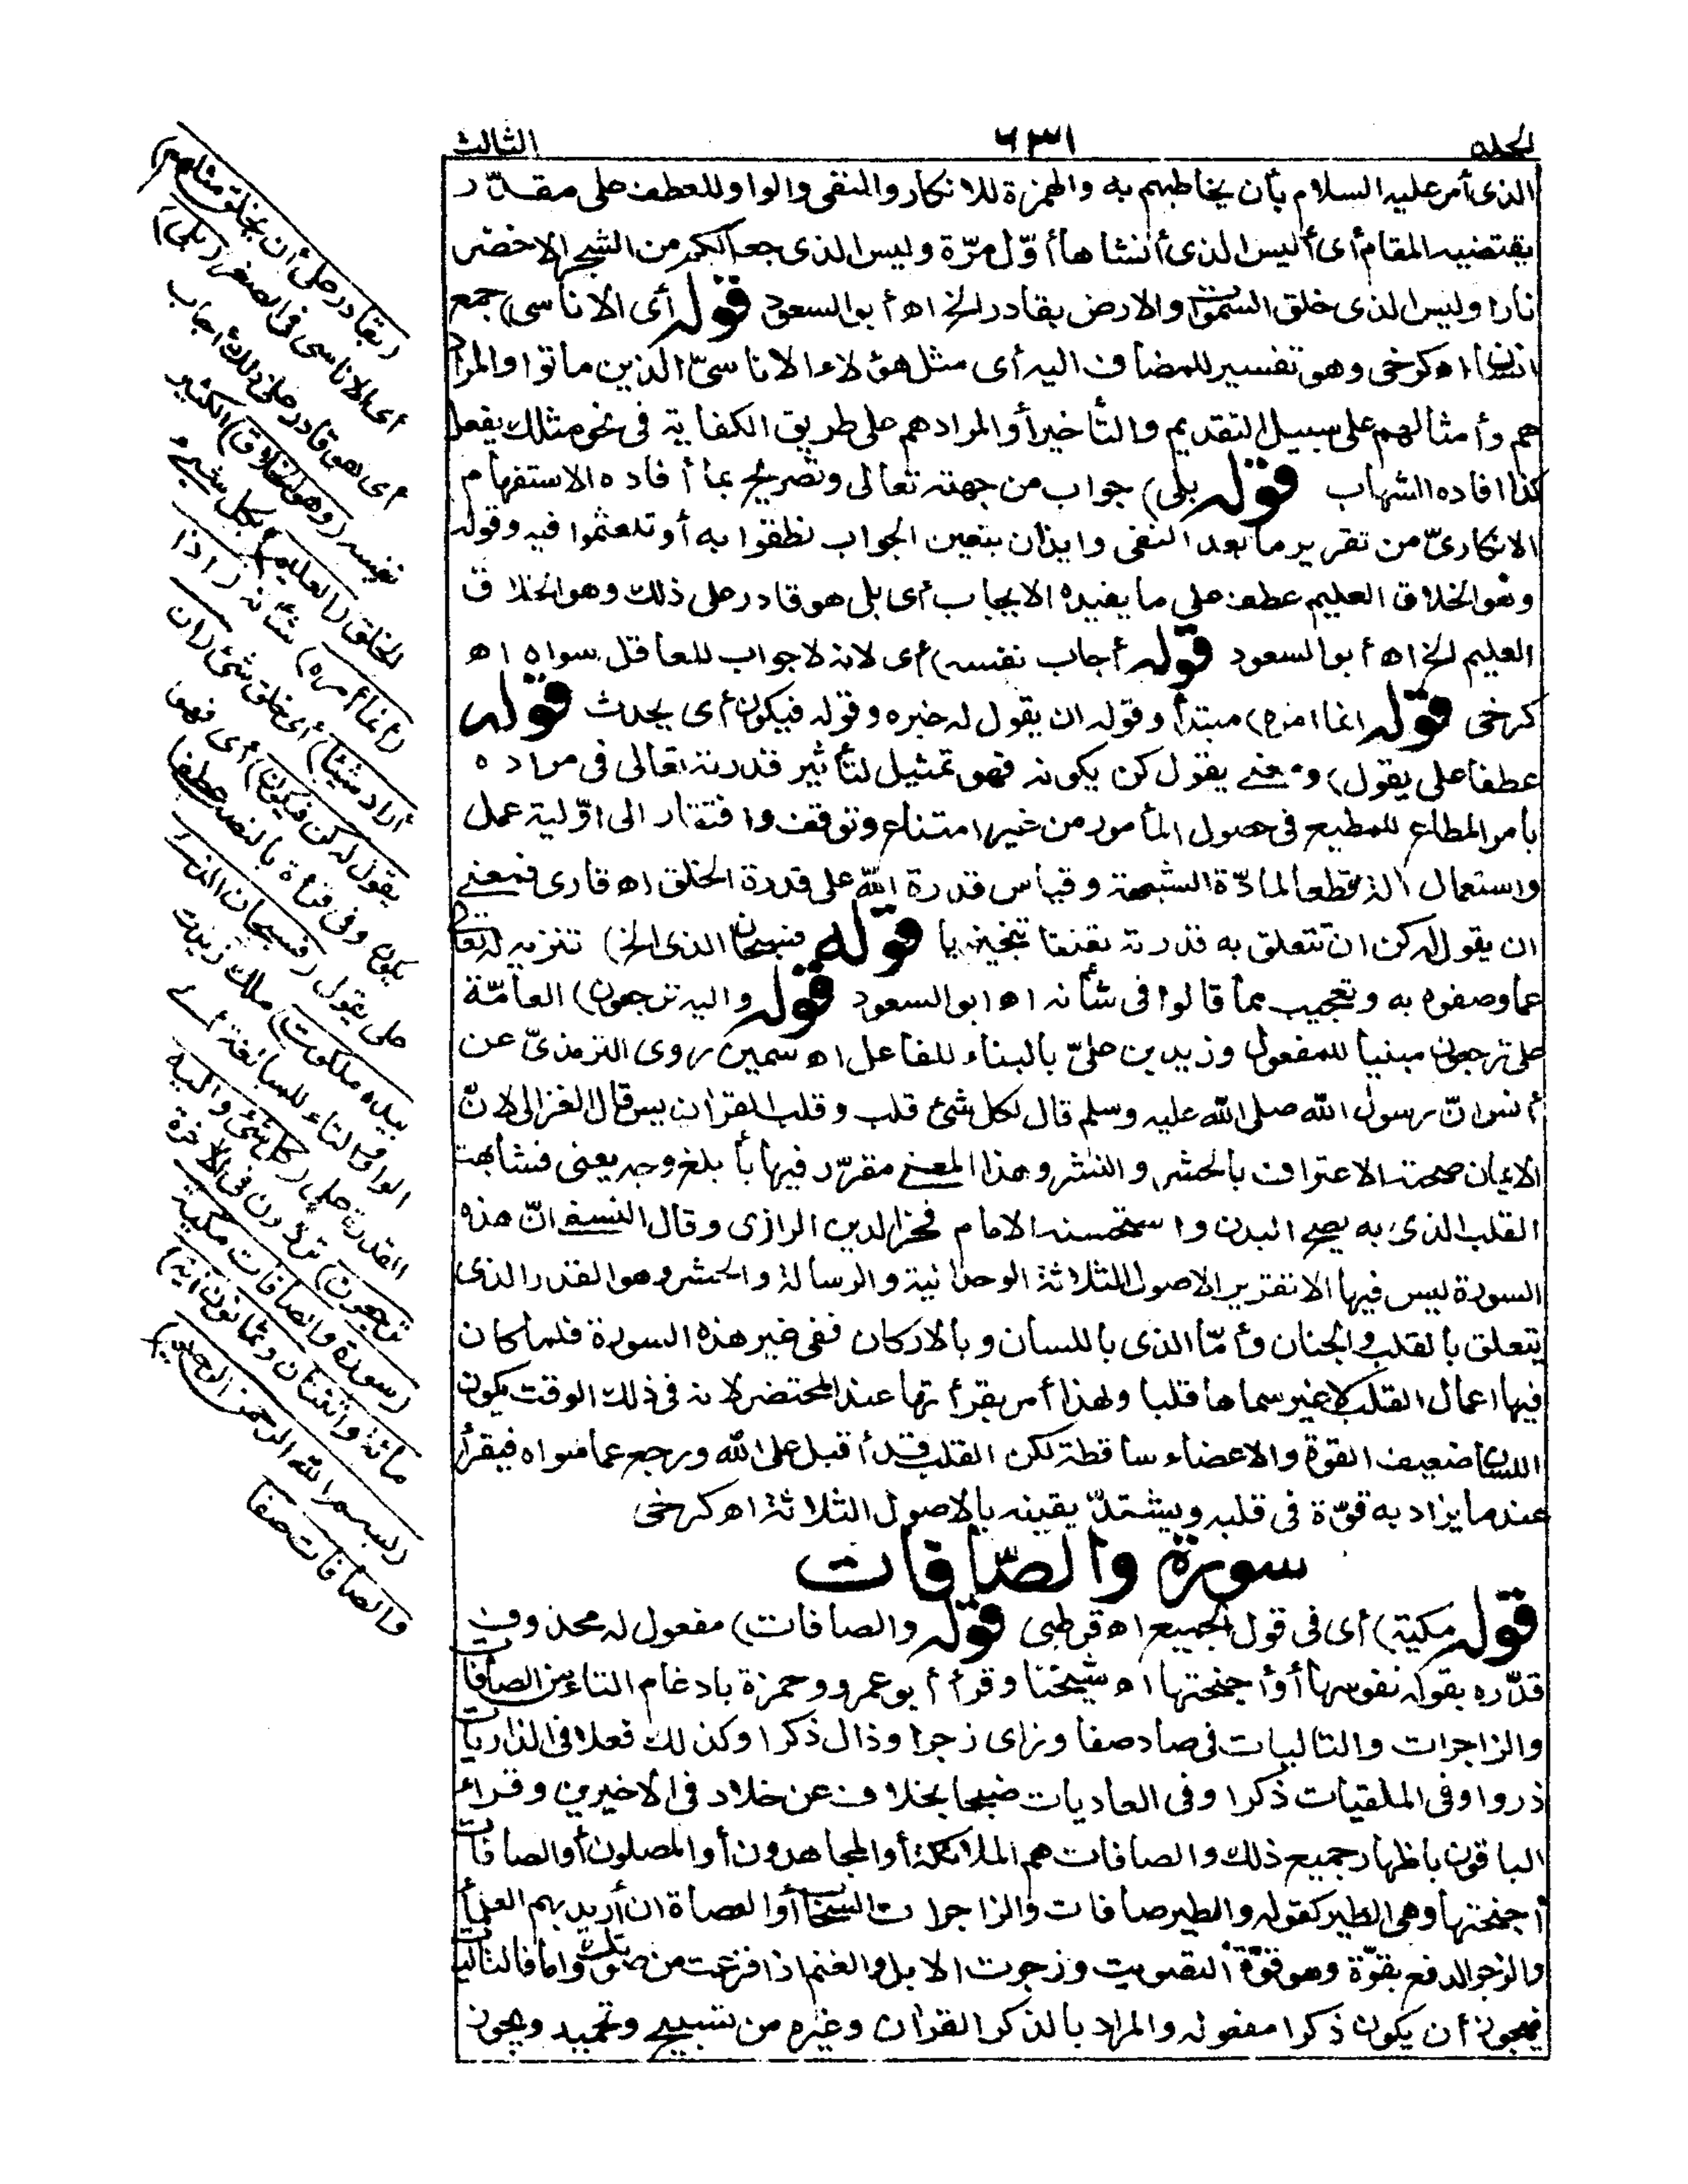 الجلد ٦٣١ الثالث
الذى أمر عليه السلام بأن يخاطبهم به والهمزة للانكار والنفى والواو للعطف على مقدّر
يقتضيه المقام أى أليس الذى أنشاها أوّل مرّة وليس الذى جعل لكم من الشجر الاخضر
نارا وليس الذى خلق السموات والارض بقادر الخ اه أبو السعود قوله أى الاناسى) جمع
انسان اه كرخى وهو تفسير للمضاف اليه أى مثل هؤلاء الاناسىّ الذين ماتوا والمراد
هم وأمثالهم على سبيل التقديم والتأخير أو المراد هم على طريق الكفاية فى نحو مثلك يفعل
كذا افاده الشهاب قوله بلى) جواب من جهته تعالى وتصريح بما أفاده الاستفهام
الانكارىّ من تقرير ما بعد النفى وايذان بتعين الجواب نطقوا به أو تلعثموا فيه وقوله
وهو الخلاق العليم عطف على ما يفيده الايجاب أى بلى هو قادر على ذلك وهو الخلاق
العليم الخ اه أبو السعود قوله أجاب نفسه) أى لانه لاجواب للعاقل سواه اه
كرخى قوله انما امره) مبتدأ وقوله ان يقول له خبره وقوله فيكون أى يحدث قوله
عطفا على يقول) ومعنى يقول كن يكونه فهو تمثيل لتأثير قدرته تعالى فى مراده
بامر المطاع للمطيع فى حصول المأمور من غير امتناع وتوقف وافتقار الى اوّلية عمل
واستعمال الة قطعا لمادّة الشبهة وقياس قدرة الله على قدرة الخلق اه قارى فمعنى
ان يقول له كن ان تتعلق به قدرته تعلقا تنجيزيا قوله فسبحان الذى الخ) تنزيه له تعالى
عما وصفوه به وتعجيب مما قالوا فى شأنه اه ابو السعود قوله واليه ترجعون) العامّة
على ترجعون مبنيا للمفعول وزيد بن علىّ بالبناء للفاعل اه سمين روى الترمذىّ عن
أنس انّ رسول الله صلى الله عليه وسلم قال لكل شئ قلب وقلب القران يس قال الغزالى لانّ
الايمان صحته الاعتراف بالحشر والنشر وهذا المعنى مقرّر فيها بأبلغ وجه يعنى فشابهت
القلب الذى به يصح البدن واستحسنه الامام فخر الدين الرازى وقال النسفى انّ هذه
السورة ليس فيها الا تقرير الاصول الثلاثة الوحدانية والرسالة والحشر وهو القدر الذى
يتعلق بالقلب والجنان وأمّا الذى باللسان وبالاركان ففى غير هذه السورة فلما كان
فيها اعمال القلب لاغير سماها قلبا ولهذا أمر بقرأتها عند المحتضر لانه فى ذلك الوقت يكون
اللسان ضعيف القوة والاعضاء ساقطة لكن القلب قد أقبل على الله ورجع عما سواه فيقرأ
عنده ما يزاد به قوّة فى قلبه ويشتدّ يقينه بالاصول الثلاثة اه كرخى
سورة والصّافات
قوله مكية) أى فى قول الجميع اه قرطبى قوله والصافات) مفعوله محذوف
قدّره بقوله نفوسها أو أجنحتها اه شيخنا وقرأ أبو عمرو وحمزة بادغام التاء من الصافات
والزاجرات والتاليات فى صاد صفا وزاى زجرا وذال ذكرا وكذلك فعلا فى الذاريات
ذروا وفى الملقيات ذكرا وفى العاديات ضبحا بخلاف عن خلاد فى الاخيرين وقراء
الباقون باظهار جميع ذلك والصافات هم الملائكة أو المجاهدون أو المصلون أو الصافات
أجنحتها وهى الطير كقوله والطير صافات والزاجرات السحاب أو العصاة ان أريد بهم العلماء
والزجر الدفع بقوّة وهو قوّة التصويت وزجرت الابل والغنم اذا فزعت من صوتك واما فالتاليات
فيجوز أن يكون ذكرا مفعوله والمراد بالذكر القران وغيره من تسبيح وتحميد ويجوز
(بقادر على أن يخلق مثلهم)
أى الاناسى فى الصغر (بلى)
أى هو قادر على ذلك اجاب
نفسه (وهو الخلاق) الكثير
الخلق (العليم) بكل شئ
(انما أمره) شأنه (اذا
أراد شيئا) أى خلق شئ (ان
يقول له كن فيكون) أى فهو
يكون وفى قرأة بالنصب عطفا
على يقول (فسبحان الذى
بيده ملكوت) ملك زيدت
الواو والتاء للمبالغة أى
القدرة على (كل شئ واليه
ترجعون) تردّون فى الاخرة
(سورة والصافات مكية
مائة واثنتان وثمانون اية)
(بسم الله الرحمن الرحيم)
والصافات صفا